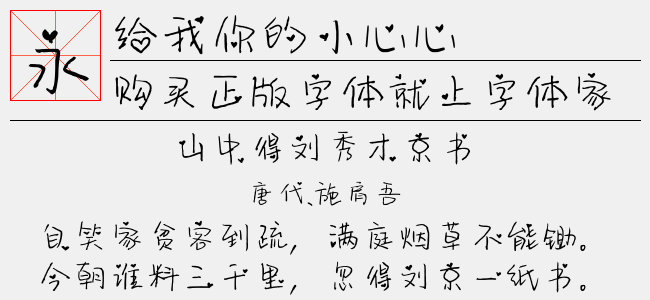 永
给我你的小心心
购买正版字体就上字体家
山中得刘秀才京书
唐代、施肩吾
自笑家贫客到疏，满庭烟草不能锄。
今朝谁料三千里，忽得刘京一纸书。